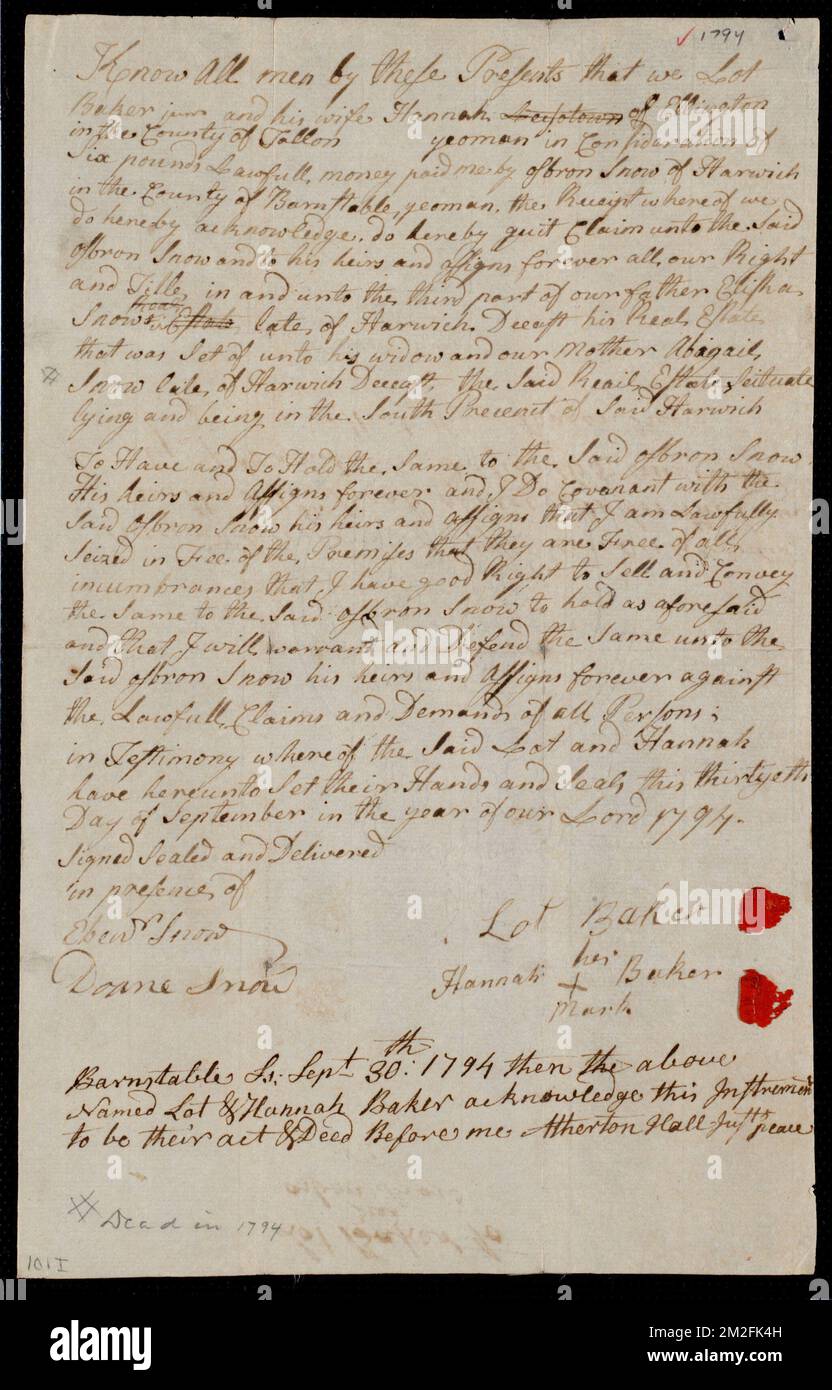 1794
Know All men by these Presents that we Lot
Baker junr and his wife Hannah of Ellington
in the County of Tollon yeoman in Consideration of
Six pounds Lawfull money paid me by osbron Snow of Harwich
in the County of Barnstable, yeoman, the Receipt whereof we
do hereby acknowledge, do hereby quit Claim unto the Said
osbron Snow and to his heirs and assigns forever all our Right
and Title in and unto the third part of our father Elisha
Snows Estate late of Harwich Deceast his Real Estate
that was Set of unto his widow and our Mother Abigail
Snow late of Harwich Deceast, the Said Reail Estate Seituate
lying and being in the South Precenct of Said Harwich
To Have and To Hold the Same to the Said osbron Snow
His heirs and Assigns forever and I Do Covenant with the
Said osbron Snow his heirs and assigns that I am Lawfully
Seized in Free of the Premises that they are Free of all
incumbrances that I have good Right to Sell and Convey
the Same to the Said osbron Snow to hold as aforesaid
and that I will warrant and Defend the Same unto the
Said osbron Snow his heirs and Assigns forever against
the Lawfull Claims and Demands of all Persons;
in Testimony where of the Said Lot and Hannah
have hereunto Set their Hands and Seals this thirtyeth
Day of September in the year of our Lord 1794.
Signed Sealed and Delivered
in presence of
Ebenr Snow
Lot Baker
Doane Snow
Hannah her X mark Baker
Barnstable Ss: Sept 30th: 1794 then the above
Named Lot & Hannah Baker acknowledge this Instrement
to be their act & Deed Before me Atherton Hall Justs peace
Dead in 1794
101I
alamy
Image ID: 2M2FK4H
www.alamy.com